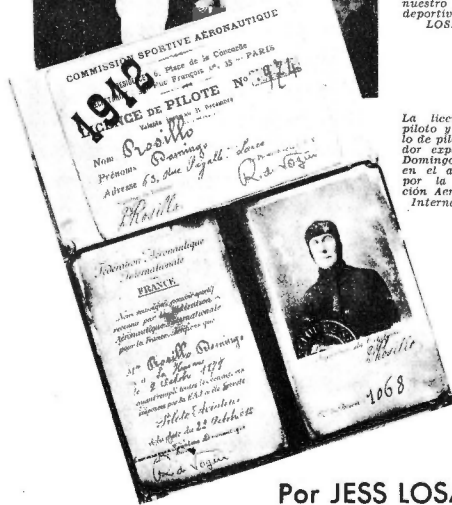 nuestro
deportiv
LOS
COMMISSION SPORTIVE AÉRONAUTIQUE
6, Place de la Concorde
Rue François 1er, 35 — PARIS
1912
LICENCE DE PILOTE No 974
Valable 31 Décembre
Nom Rosillo
Prénoms Domingo
Adresse 63, Rue
D. Rosillo
La licen
piloto y
lo de pil
dor exp
Domingo
en el a
por la
ción Aer
Interna
Fédération Aéronautique
Internationale
FRANCE
Nous soussignés pouvoir sportif
reconnu par la Fédération
Aéronautique Internationale
pour la France, que
Mr Rosillo Domingo
né à La Havane
le 3 Octobre 1878
ayant rempli toutes les conditions
imposées par la F.A.I. a été breveté
Pilote Aviateur
à la date du 22 Octobre
D. Rosillo
1068
Por JESS LOSA